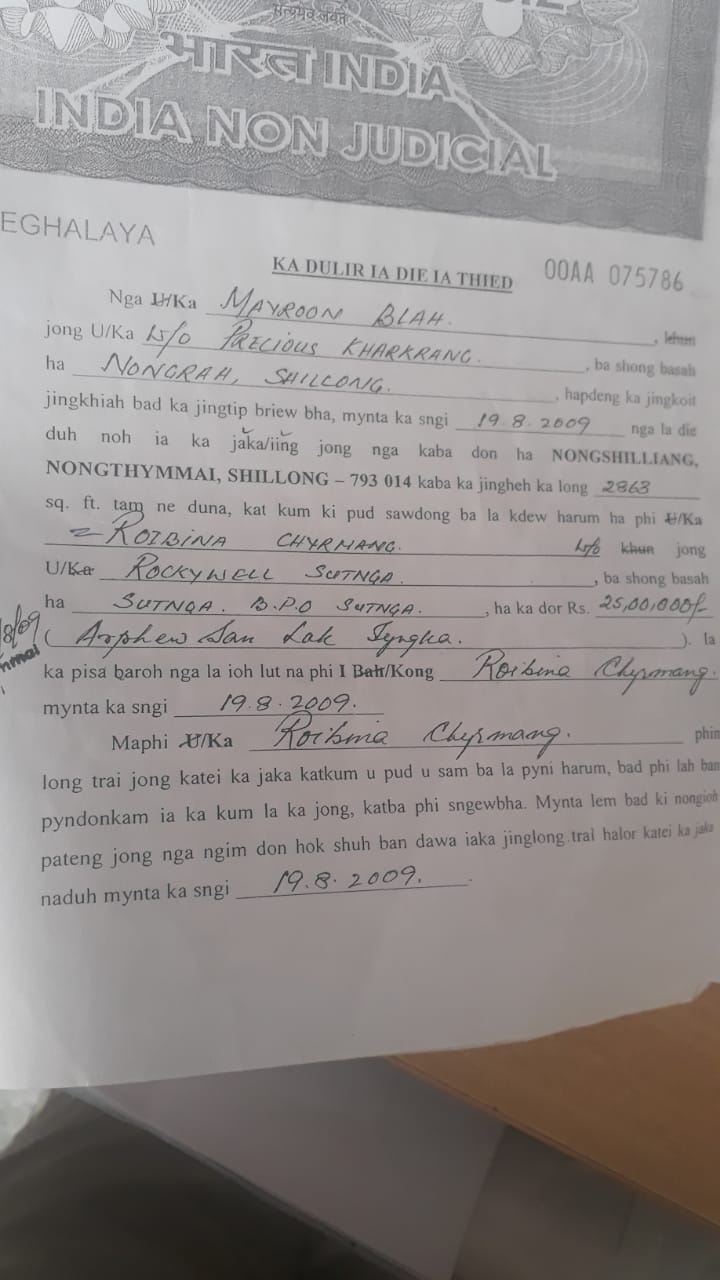 सत्यमेव जयते
भारत INDIA
INDIA NON JUDICIAL
EGHALAYA
KA DULIR IA DIE IA THIED 00AA 075786
Nga U/Ka MAYROON BLAH. , khun
jong U/Ka W/o PRECIOUS KHARKRANG. , ba shong basah
ha NONGRAH, SHILLONG. , hapdeng ka jingkoit
jingkhiah bad ka jingtip briew bha, mynta ka sngi 19.8.2009 nga la die
duh noh ia ka jaka/iing jong nga kaba don ha NONGSHILLIANG,
NONGTHYMMAI, SHILLONG – 793 014 kaba ka jingheh ka long 2863
sq. ft. tam ne duna, kat kum ki pud sawdong ba la kdew harum ha phi U/Ka
ROIBINA CHYRMANG. W/o khun jong
U/Ka ROCKYWELL SUTNGA. , ba shong basah
ha SUTNGA. B.P.O SUTNGA. , ha ka dor Rs. 25,00,000/-
( Arphew San Lak Tyngka. ). la
ka pisa baroh nga la ioh lut na phi I Bah/Kong Roibina Chyrmang.
mynta ka sngi 19.8.2009.
Maphi U/Ka Roibina Chyrmang. phin
long trai jong katei ka jaka katkum u pud u sam ba la pyni harum, bad phi lah ban
pyndonkam ia ka kum la ka jong, katba phi sngewbha. Mynta lem bad ki nongioh
pateng jong nga ngim don hok shuh ban dawa iaka jinglong trai halor katei ka jaka
naduh mynta ka sngi 19.8.2009.